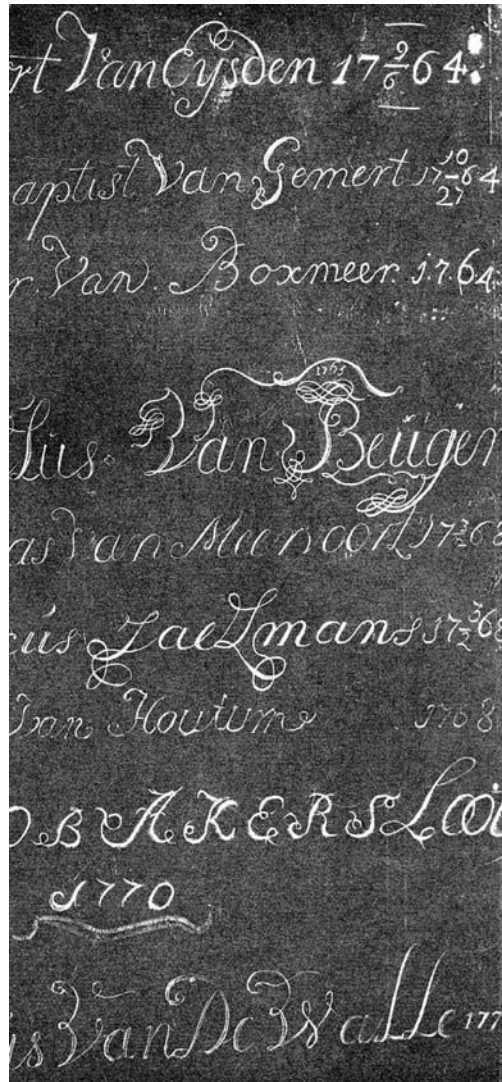 rt Van Eijsden 17 9/6 64.
aptist Van Gemert 17 10/27 64
r. Van. Boxmeer. 1.7.64.
1765
lus. Van Beügen
as Van Meervoort 17
cús Zaelmans 17 3/2 68
Van Houtum 1768
OB AKERS Looi
1770
is Van De Walle 177